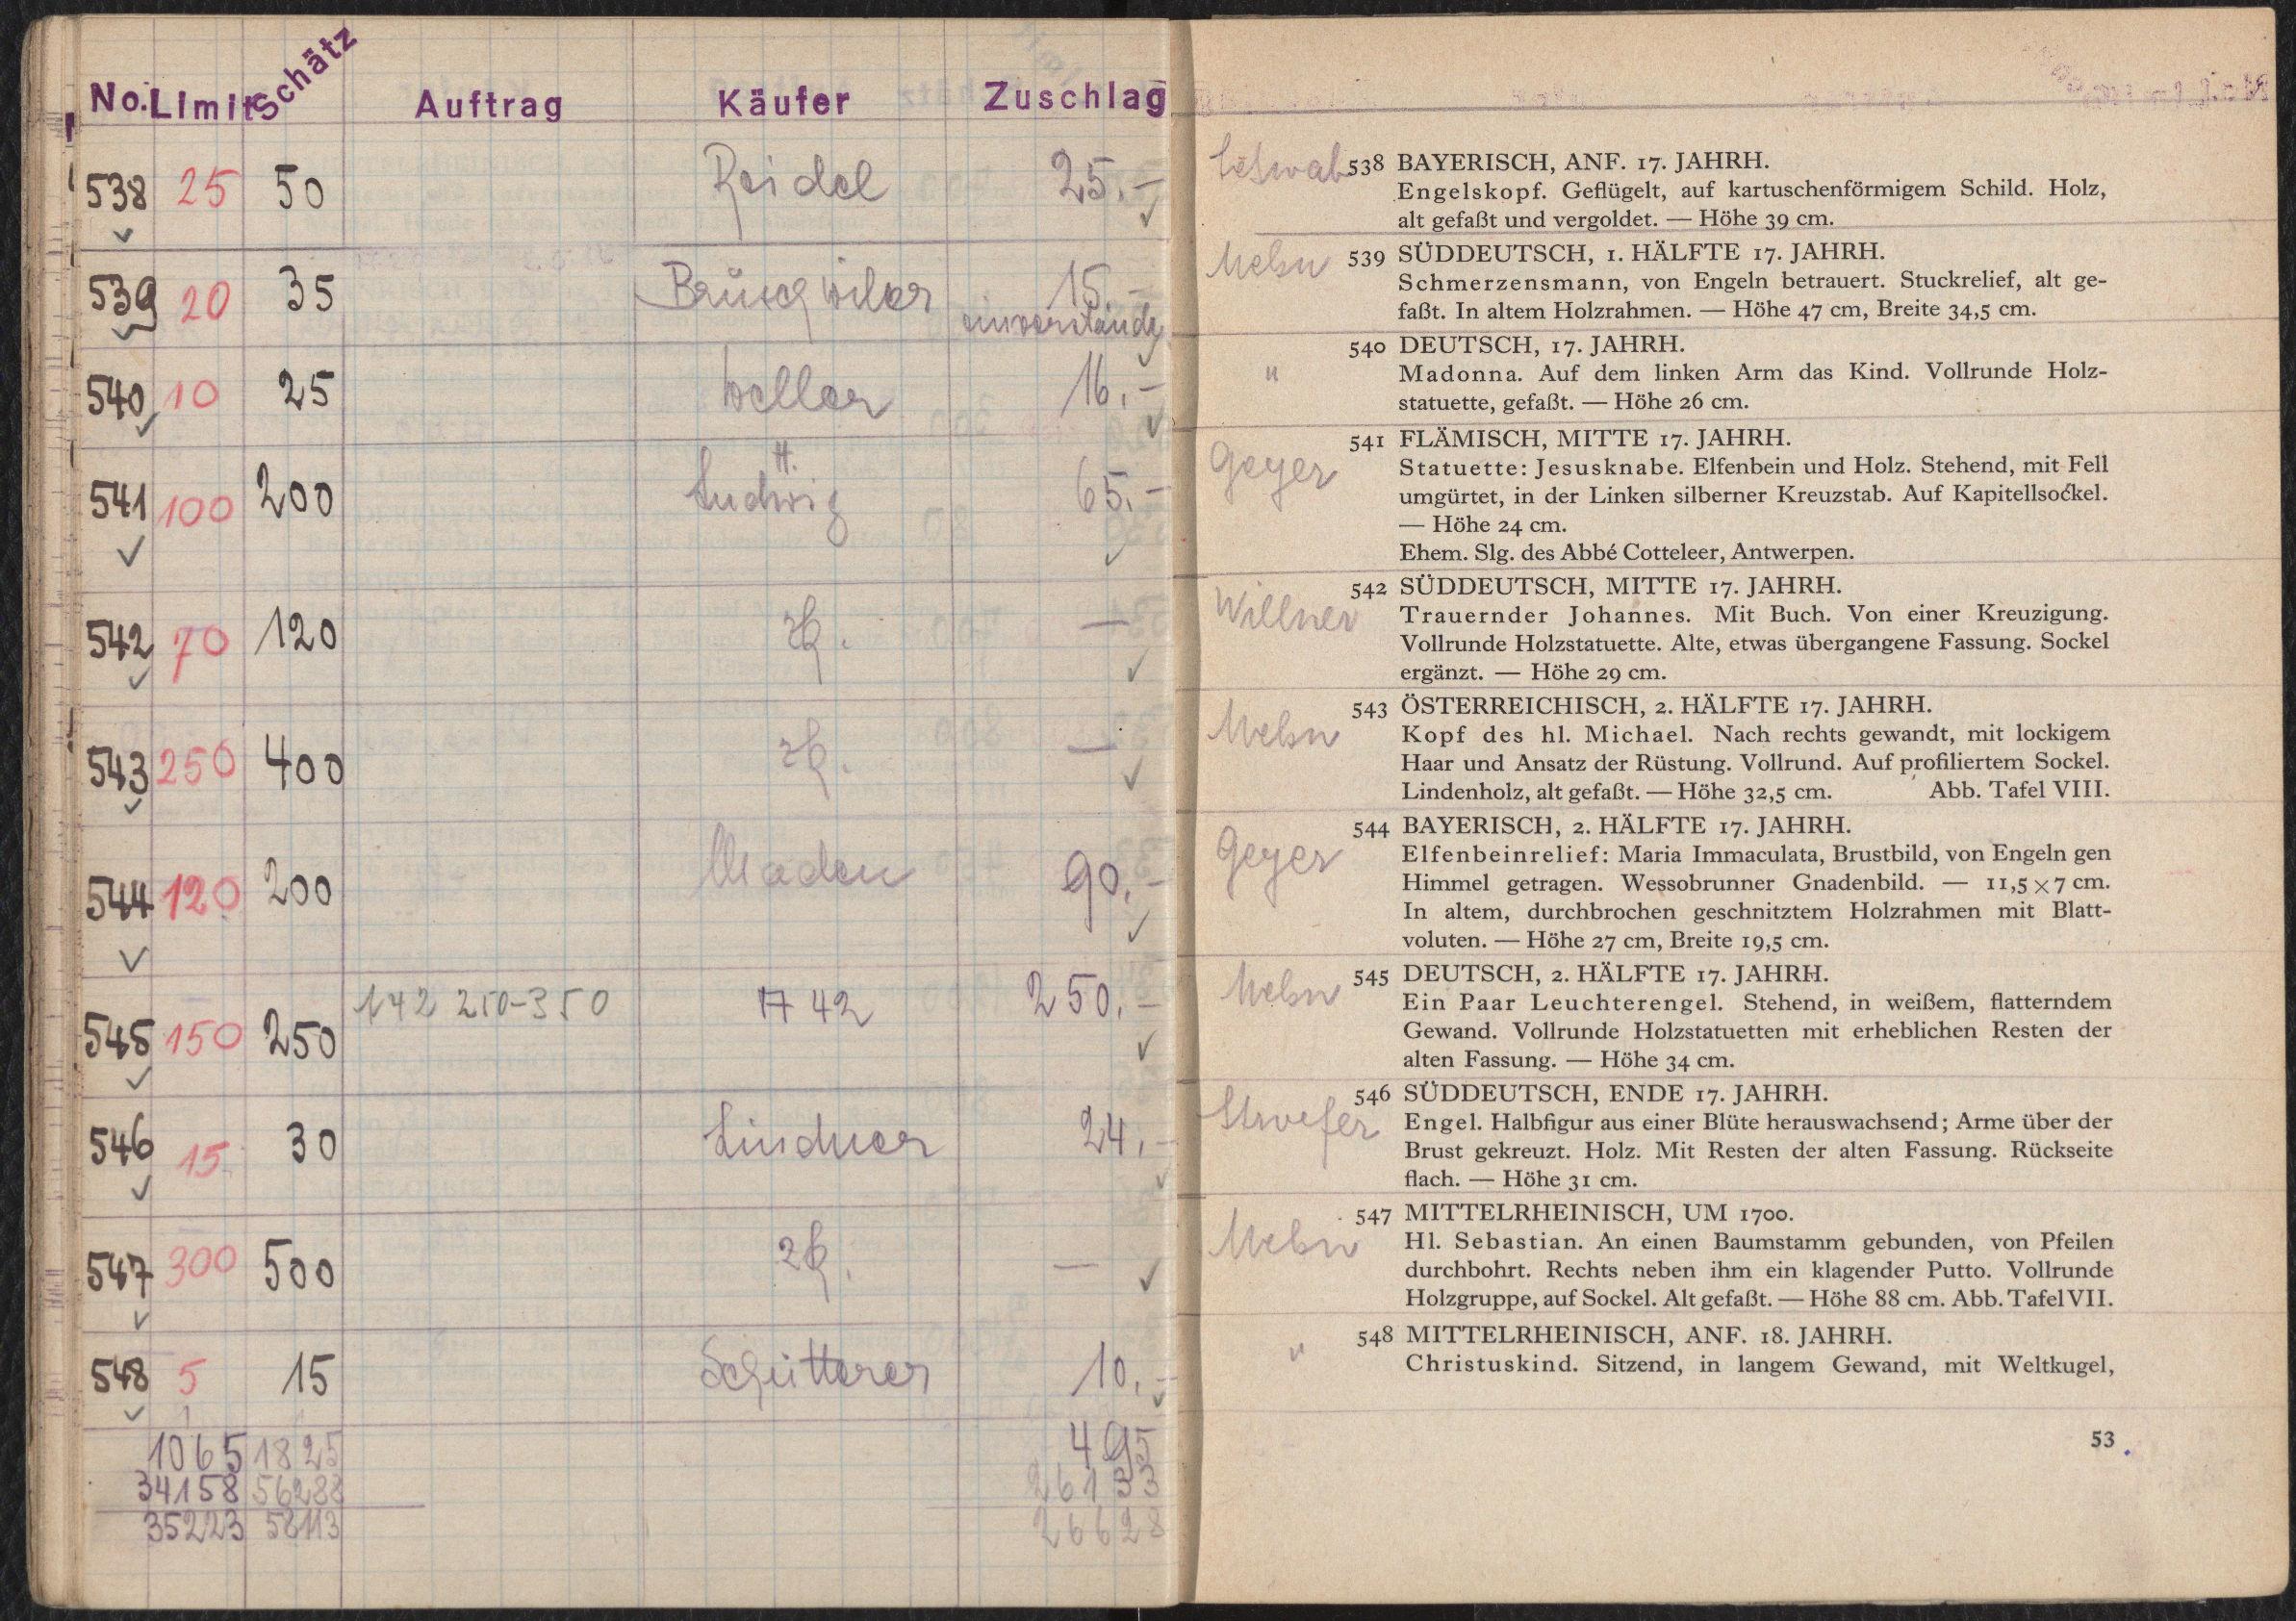 No. Limit Schätz Auftrag Käufer Zuschlag
538 25 50 Reidel 25.-
539 20 35 15.-
einverstanden
540 10 25 Weller 16.-
541 100 200 H. Ludwig 65.-
542 70 120 —
543 250 400 —
544 120 200 90.-
545 150 250 142 250-350 A 42 250.-
546 15 30 Lindner 24.-
547 300 500 —
548 5 15 10.-
1065 1825 495
34158 56288 26133
35223 58113 26628
538 BAYERISCH, ANF. 17. JAHRH.
Engelskopf. Geflügelt, auf kartuschenförmigem Schild. Holz,
alt gefaßt und vergoldet. — Höhe 39 cm.
539 SÜDDEUTSCH, 1. HÄLFTE 17. JAHRH.
Schmerzensmann, von Engeln betrauert. Stuckrelief, alt ge-
faßt. In altem Holzrahmen. — Höhe 47 cm, Breite 34,5 cm.
540 DEUTSCH, 17. JAHRH.
" Madonna. Auf dem linken Arm das Kind. Vollrunde Holz-
statuette, gefaßt. — Höhe 26 cm.
541 FLÄMISCH, MITTE 17. JAHRH.
Geyer Statuette: Jesusknabe. Elfenbein und Holz. Stehend, mit Fell
umgürtet, in der Linken silberner Kreuzstab. Auf Kapitellsockel.
— Höhe 24 cm.
Ehem. Slg. des Abbé Cotteleer, Antwerpen.
542 SÜDDEUTSCH, MITTE 17. JAHRH.
Willner Trauernder Johannes. Mit Buch. Von einer Kreuzigung.
Vollrunde Holzstatuette. Alte, etwas übergangene Fassung. Sockel
ergänzt. — Höhe 29 cm.
543 ÖSTERREICHISCH, 2. HÄLFTE 17. JAHRH.
Kopf des hl. Michael. Nach rechts gewandt, mit lockigem
Haar und Ansatz der Rüstung. Vollrund. Auf profiliertem Sockel.
Lindenholz, alt gefaßt. — Höhe 32,5 cm. Abb. Tafel VIII.
544 BAYERISCH, 2. HÄLFTE 17. JAHRH.
Geyer Elfenbeinrelief: Maria Immaculata, Brustbild, von Engeln gen
Himmel getragen. Wessobrunner Gnadenbild. — 11,5 × 7 cm.
In altem, durchbrochen geschnitztem Holzrahmen mit Blatt-
voluten. — Höhe 27 cm, Breite 19,5 cm.
545 DEUTSCH, 2. HÄLFTE 17. JAHRH.
Ein Paar Leuchterengel. Stehend, in weißem, flatterndem
Gewand. Vollrunde Holzstatuetten mit erheblichen Resten der
alten Fassung. — Höhe 34 cm.
546 SÜDDEUTSCH, ENDE 17. JAHRH.
Engel. Halbfigur aus einer Blüte herauswachsend; Arme über der
Brust gekreuzt. Holz. Mit Resten der alten Fassung. Rückseite
flach. — Höhe 31 cm.
547 MITTELRHEINISCH, UM 1700.
Hl. Sebastian. An einen Baumstamm gebunden, von Pfeilen
durchbohrt. Rechts neben ihm ein klagender Putto. Vollrunde
Holzgruppe, auf Sockel. Alt gefaßt. — Höhe 88 cm. Abb. Tafel VII.
548 MITTELRHEINISCH, ANF. 18. JAHRH.
" Christuskind. Sitzend, in langem Gewand, mit Weltkugel,
53